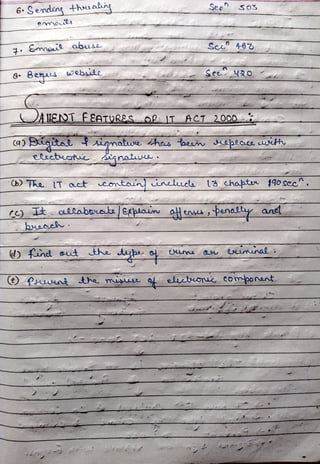 6. Sending threating Secⁿ 503
emails
7. Email abuse Secⁿ 463
8. Bogus website Secⁿ 420
SALIENT FEATURES OF IT ACT 2000 :
(a) Digital signature has been replace with
electronic signature.
(b) The IT act contain/include 13 chapter 90 secⁿ.
(c) It ellaborate/Explain offense, penalty and
breach.
(d) Find out the type of crime or criminal.
(e) Prevent the misuse of electronic component